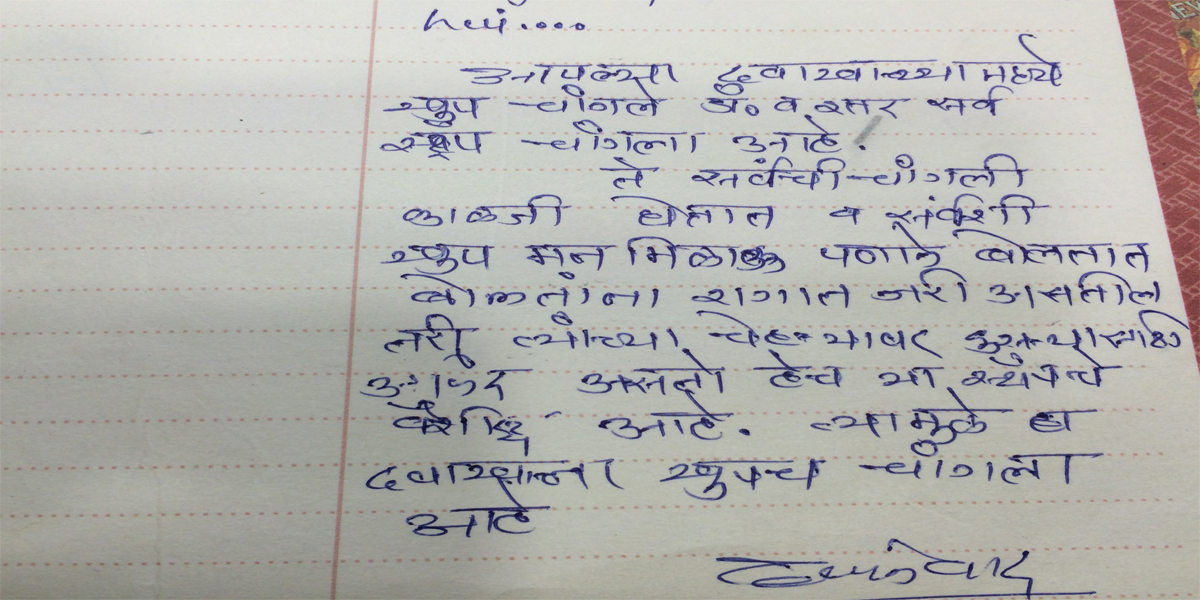 आपल्या दवाखान्यामध्ये
खुप चांगले डॉ. व स्टाफ सर्व
खुप चांगला आहे.
ते सर्वांची चांगली
काळजी घेतात व सर्वांशी
खुप मन मिळाऊ पणाने बोलतात
बोलतांना रागात जरी असतील
तरी त्यांच्या चेहऱ्यावर दुसऱ्यासाठी
आनंद असतो हेच या
आहे. त्यामुळे हा
दवाखाना खुपच चांगला
आहे
धन्यवाद